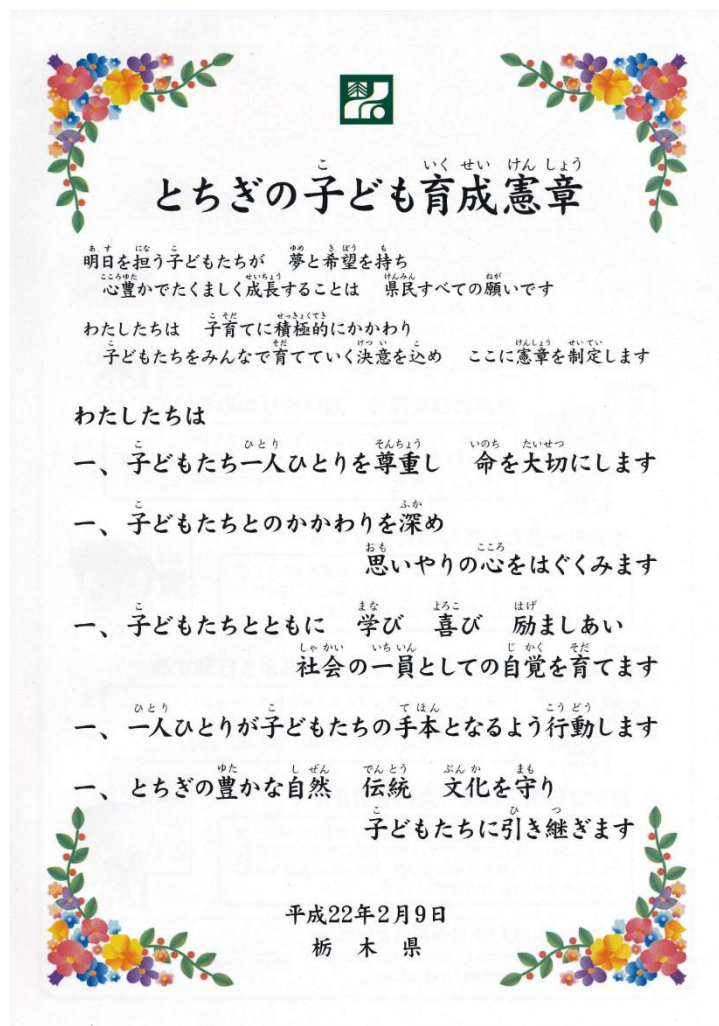 とちぎの子ども育成憲章
明日を担う子どもたちが　夢と希望を持ち
心豊かでたくましく成長することは　県民すべての願いです
わたしたちは　子育てに積極的にかかわり
子どもたちをみんなで育てていく決意を込め　ここに憲章を制定します
わたしたちは
一、子どもたち一人ひとりを尊重し　命を大切にします
一、子どもたちとのかかわりを深め
思いやりの心をはぐくみます
一、子どもたちとともに　学び　喜び　励ましあい
社会の一員としての自覚を育てます
一、一人ひとりが子どもたちの手本となるよう行動します
一、とちぎの豊かな自然　伝統　文化を守り
子どもたちに引き継ぎます
平成22年2月9日
栃 木 県